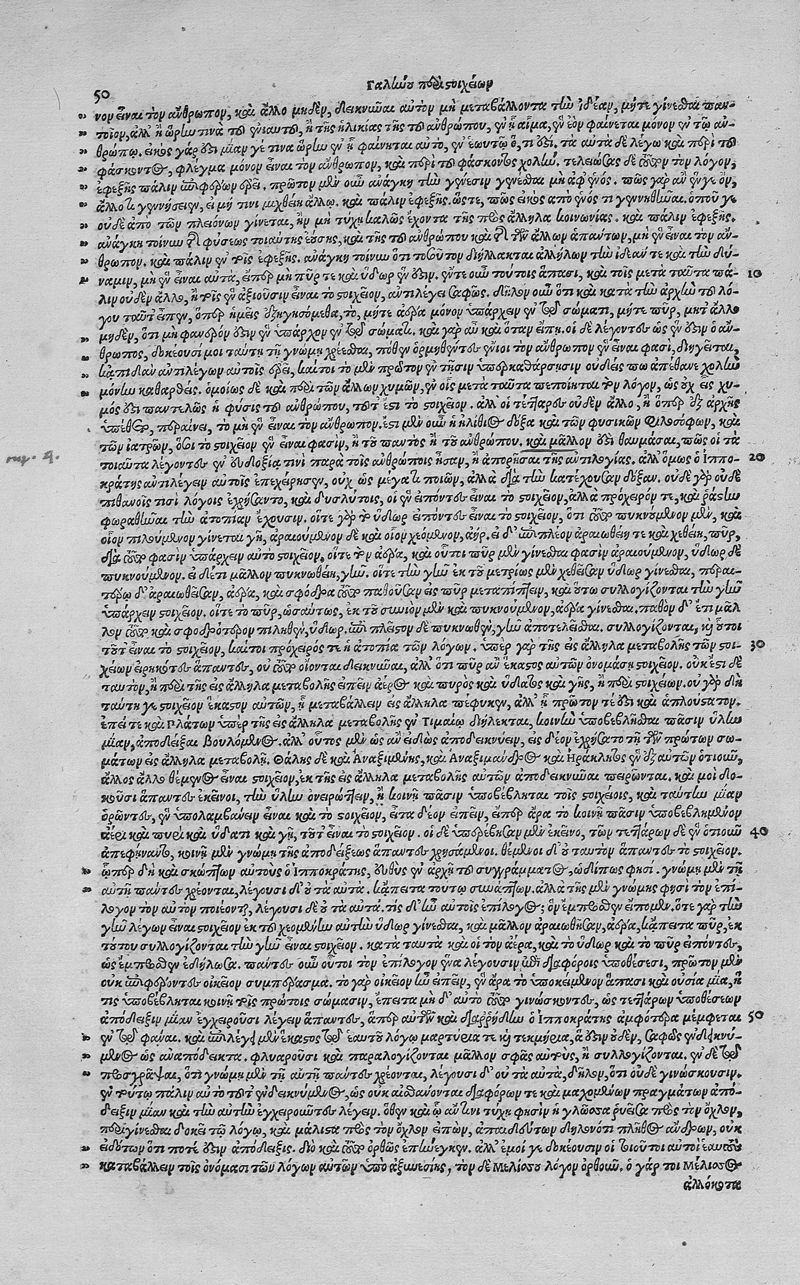 50
Γαληνοῦ περὶ στοιχείων
νον εἶναι τὸν ἄνθρωπον, καὶ ἄλλο μηδὲν, δεικνῦναι αὐτὸν μὴ μεταβάλλοντα τὴν ἰδέαν, μήτε γίνεσθαι παν-
τοῖον, ἀλλ' ἢ ὥρην τινὰ τοῦ ἐνιαυτοῦ, ἢ τῆς ἡλικίας τῆς τοῦ ἀνθρώπου, ἐν ᾗ αἷμα, ἓν ἐὸν φαίνεται μόνον ἐν τῷ ἀν-
θρώπῳ. εἰκὸς γάρ ἐστι μίαν γέ τινα ὥρην ἐν ᾗ φαίνεται αὐτὸ, ἐν ἑωυτῷ ὅ, τι ἐστί. τὰ αὐτὰ δὲ λέγω καὶ περὶ τοῦ
φάσκοντος, φλέγμα μόνον εἶναι τὸν ἄνθρωπον, καὶ περὶ τοῦ φάσκοντος χολήν. τελειώσας δὲ τοῦτον τὸν λόγον,
ἐφεξῆς πάλιν ἐπιφέρων ἐρεῖ. πρῶτον μὲν οὖν ἀνάγκη τὴν γένεσιν γενέσθαι μὴ ἀφ' ἑνός. πῶς γὰρ ἂν ἕν γε ὂν,
ἄλλο τι γεννήσειεν, εἰ μή τινι μιχθείη ἄλλῳ. καὶ πάλιν ἐφεξῆς. ὥστε, πῶς εἰκὸς ἀπὸ ἑνός τι γεννηθῆναι. ὁπου γε
οὐδὲ ἀπὸ τῶν πλειόνων γίνεται, ἢν μὴ τύχῃ καλῶς ἔχοντα τῆς πρὸς ἄλληλα κοινωνίας. καὶ πάλιν ἐφεξῆς.
ἀνάγκη τοίνυν τῆς φύσεως τοιαύτης ἐούσης, καὶ τῆς τοῦ ἀνθρώπου καὶ τῆς τῶν ἄλλων ἁπάντων, μὴ ἓν εἶναι τὸν ἄν-
θρωπον. καὶ πάλιν ἐν τοῖς ἐφεξῆς. ἀνάγκη τοίνυν ὅτι τοσοῦτον διήλλακται ἀλλήλων τὴν ἰδέαν τε καὶ τὴν δύ-
ναμιν, μὴ ἓν εἶναι αὐτὰ, εἴπερ μὴ πῦρ τε καὶ ὕδωρ ἕν ἐστιν. ἔν τε οὖν τούτοις ἅπασι, καὶ τοῖς μετὰ ταῦτα πά- 10
λιν οὐδὲν ἄλλο, ἢ τοῖς ἓν ἀξιοῦσιν εἶναι τὸ στοιχεῖον, ἀντιλέγει σαφῶς. δῆλον οὖν ὅτι καὶ κατὰ τὴν ἀρχὴν τοῦ λό-
γου ταῦτ' εἶπεν, ὅπερ ἡμεῖς ἐξηγησόμεθα, τὸ, μήτε ἀέρα μόνον ὑπάρχειν ἐν τῷ σώματι, μήτε πῦρ, μητ' ἄλλο
μηδὲν, ὅτι μὴ φανερόν ἐστιν ἓν ὑπάρχον ἐν τῷ σώματι. καὶ γὰρ ἂν καὶ ὅταν εἴπῃ. οἱ δὲ λέγοντες ὡς ἕν ἐστιν ὁ ἄν-
θρωπος, δοκέουσί μοι ταύτῃ τῇ γνώμῃ χρέεσθαι, πόθεν ὁρμηθέντες ἔνιοι τὸν ἄνθρωπον ἓν εἶναι φασὶ, διηγεῖται,
κᾄπειδ' ἂν ἀντιλέγων αὐτοῖς ἐρεῖ, καίτοι τὸ μὲν πρῶτον ἐν τῇσιν ὑπερκαθάρσησιν οὐδείς πω ἀπέθανε χολὴν
μόνην καθαρθείς. ὁμοίως δὲ καὶ περὶ τῶν ἄλλων χυμῶν, ἐν οἷς μετὰ ταῦτα πεποίηται τὸν λόγον, ὡς οὐχ εἷς χυ-
μός ἐστι παντελῶς ἡ φύσις τοῦ ἀνθρώπου, τοῦτ' ἔστι τὸ στοιχεῖον. ἀλλ' οἱ τέσσαρες οὐδὲν ἄλλο, ἢ ὅπερ ἐξ ἀρχῆς
ὑπέθετο, περαίνει, τὸ μὴ ἓν εἶναι τὸν ἄνθρωπον. ἔστι μὲν οὖν ἡ ἠλίθιος δόξα καὶ τῶν φυσικῶν φιλοσόφων, καὶ
τῶν ἰατρῶν, ὅσοι τὸ στοιχεῖον ἓν εἶναι φασὶν, ἢ τοῦ παντὸς ἢ τοῦ ἀνθρώπου. καὶ μᾶλλον ἐστὶ θαυμάσαι, πῶς οἱ τὰ
τοιαῦτα λέγοντες ἐν εὐδοξίᾳ τινὶ παρὰ τοῖς ἀνθρώποις ἦσαν, ἢ ἀπορῆσαι τῆς ἀντιλογίας. ἀλλ' ὅμως ὁ Ἱππο- 20
κράτης ἀντιλέγειν αὐτοῖς ἐπεχείρησεν, οὐχ ὡς μέγα τι ποιῶν, ἀλλὰ διὰ τὴν κατέχουσαν δόξαν. οὐδὲ γὰρ οὐδὲ
πιθανοῖς τισὶ λόγοις ἐχρήσαντο, καὶ δυσλύτοις, οἱ ἓν εἰπόντες εἶναι τὸ στοιχεῖον, ἀλλὰ πρόχειρόν τε, καὶ ῥᾴστην
φωραθῆναι τὴν ἀτοπίαν ἔχουσιν. οἵτε γὰρ τὸ ὕδωρ εἰπόντες εἶναι τὸ στοιχεῖον, ὅτι τοῦτο πυκνούμενον μὲν, καὶ
οἷον πιλούμενον γίνεται γῆ, ἀραιούμενον δὲ καὶ οἷον χεόμενον, ἀήρ. εἰ δ' ἐπὶ πλέον ἀραιωθείη τε καὶ χεθείη, πῦρ,
διὰ τοῦτο φασὶν ὑπάρχειν αὐτὸ στοιχεῖον, οἵτε τὸν ἀέρα, καὶ οὗτοι πῦρ μὲν γίνεσθαι φασὶν ἀραιούμενον, ὕδωρ δὲ
πυκνούμενον. εἰ δ' ἔτι μᾶλλον πυκνωθείη, γῆν. οἵτε τὴν γῆν ἐκ τοῦ μετρίως μὲν χεθεῖσαν ὕδωρ γίνεσθαι, περαι-
τέρω δ' ἀραιωθεῖσαν, ἀέρα, καὶ σφόδρα τοῦτο παθοῦσαν εἰς πῦρ μεταπίπτειν, καὶ οὕτω συλλογίζονται τὴν γῆν
ὑπάρχειν στοιχεῖον. οἵτε τὸ πῦρ, ὡσαύτως, ἐκ τοῦ συνιὸν μὲν καὶ πυκνούμενον, ἀέρα γίνεσθαι. παθὸν δ' ἔτι μᾶλ
λον τοῦτο καὶ σφοδρότερον πιληθὲν, ὕδωρ. ἐπὶ πλεῖστον δὲ πυκνωθὲν, γῆν ἀποτελεῖσθαι. συλλογίζονται, καὶ οὗτοι
τοῦτ' εἶναι τὸ στοιχεῖον, καίτοι πρόχειρός τε ἡ ἀτοπία τῶν λόγων. ὑπὲρ γὰρ τῆς εἰς ἄλληλα μεταβολῆς τῶν στοι- 30
χείων εἰρηκότες ἅπαντες, οὐ τοῦτο οἴονται δεικνῦναι, ἀλλ' ὅτι πῦρ ἂν ἕκαστος αὐτῶν ὀνομάσῃ στοιχεῖον. οὐκ ἔστι δὲ
ταυτὸν, ἢ περὶ τῆς εἰς ἄλληλα μεταβολῆς εἰπεῖν ἀέρος καὶ πυρὸς καὶ ὕδατος καὶ γῆς, ἢ περὶ στοιχείων. οὐ γὰρ δὴ
ταύτῃ γε στοιχεῖον ἕκαστον αὐτῶν, ᾗ μεταβάλλειν εἰς ἄλληλα πέφυκεν, ἀλλ' ᾗ πρῶτόν τέ ἐστι καὶ ἁπλούστατον.
ἐπεί τε καὶ Πλάτων ὑπὲρ τῆς εἰς ἄλληλα μεταβολῆς ἐν Τιμαίῳ διήλεκται, κοινὴν ὑποβεβλῆσθαι πᾶσιν ὕλην
μίαν, ἀποδεῖξαι βουλόμενος. ἀλλ' οὗτος μὲν ὡς ἂν εἰδὼς ἀποδεικνύειν, εἰς δέον ἐχρήσατο τῇ τῶν πρώτων σω-
μάτων εἰς ἄλληλα μεταβολῇ. Θαλῆς δὲ καὶ Ἀναξιμένης, καὶ Ἀναξίμανδρος καὶ Ἡράκλειτος ἓν ἐξ αὐτῶν ὁτιοῦν,
ἄλλος ἄλλο θέμενος εἶναι στοιχεῖον, ἐκ τῆς εἰς ἄλληλα μεταβολῆς αὐτῶν ἀποδεικνῦναι πειρῶνται. καί μοι δο-
κοῦσι ἅπαντες ἐκεῖνοι, τὴν ὕλην ὀνειρώττειν, ἣ κοινὴ πᾶσιν ὑποβέβληται τοῖς στοιχείοις, καὶ ταύτην μίαν
ὁρῶντες, ἓν ὑπολαμβάνειν εἶναι καὶ τὸ στοιχεῖον, εἶτα δέον εἰπεῖν, εἴπερ ἄρα τὸ κοινῇ πᾶσιν ὑποβεβλημένον
ἀέρι καὶ πυρὶ καὶ ὕδατι καὶ γῇ, τοῦτ' εἶναι τὸ στοιχεῖον. οἱ δὲ ὑπερέβησαν μὲν ἐκεῖνο, τῶν τεσσάρων δὲ ἓν ὁτιοῦν 40
ἀπεφήναντο, κοινῇ μὲν γνώμῃ τῆς ἀποδείξεως ἅπαντες χρησάμενοι. θέμενοι δὲ οὐ ταυτὸν ἅπαντες τὸ στοιχεῖον.
ὥσπερ δὴ καὶ σκώπτων αὐτοὺς ὁ Ἱπποκράτης, εὐθὺς ἐν ἀρχῇ τοῦ συγγράμματος, ὧδέ πώς φησι. γνώμῃ μὲν τῇ
αὐτῇ πάντες χρέονται, λέγουσι δὲ οὐ τὰ αὐτά. κᾄπειτα τούτῳ συνάπτων. ἀλλὰ τῆς μὲν γνώμης φησὶ τὸν ἐπί-
λογον τὸν αὐτὸν ποιέονται, λέγουσι δὲ οὐ τὰ αὐτά. τίς δ' ἦν αὐτοῖς ἐπίλογος; ὃν ἔμπροσθεν εἴπομεν. ὅτε γὰρ τὴν
γῆν λέγων εἶναι στοιχεῖον ἐκ τοῦ χεομένην αὐτὴν ὕδωρ γίνεσθαι, καὶ μᾶλλον ἀραιωθεῖσαν, ἀέρα, κᾄπειτα πῦρ, ἐκ
τούτου συλλογίζονται τὴν γῆν εἶναι στοιχεῖον. κατὰ ταυτὰ καὶ οἱ τὸν ἀέρα, καὶ τὸ ὕδωρ καὶ τὸ πῦρ εἰπόντες,
ὡς ἔμπροσθεν ἐδήλωσα. πάντες οὖν οὗτοι τὸν ἐπίλογον ἕνα λέγουσιν ἐπὶ διαφόροις ὑποθέσεσι, πρῶτον μὲν
οὐκ ἐπιφέροντες οἰκεῖον συμπέρασμα. τὸ γὰρ οἰκεῖον ἦν εἰπεῖν, ἓν ἄρα τὸ ὑποκείμενον ἅπασι καὶ οὐσία μία, ἥ
τις ὑποβέβληται κοινὴ τοῖς πρώτοις σώμασιν, ἔπειτα μὴ δ' αὐτὸ τοῦτο γινώσκοντες, ὡς τεσσάρων ὑποθέσεων
ἀπόδειξιν μίαν ἐγχειροῦσι λέγειν ἅπαντες, ἅπερ αὐτῶν καὶ διαρρήδην ὁ Ἱπποκράτης ἀμφότερα μέμφεται 50
ἐν τῷ φάναι. καὶ ἐπιλέγει μὲν ἕκαστος τῷ ἑαυτοῦ λόγῳ μαρτύρια τε καὶ τεκμήρια, ἅ ἐστιν οὐδὲν, σαφῶς ἐνδεικνύ-
μενος ὡς ἀναπόδεικτα. φλυαροῦσι καὶ παραλογίζονται μᾶλλον σφᾶς αὐτοὺς, ἢ συλλογίζονται. ἐν δὲ τῷ
προσγράψαι, ὅτι γνώμῃ μὲν τῇ αὐτῇ πάντες χρέονται, λέγουσι δ' οὐ τὰ αὐτὰ, δῆλον, ὅτι οὐδὲ γινώσκουσιν.
ἐν τούτῳ πάλιν αὖ τοῦτ' ἐνδεικνύμενος, ὡς οὐκ αἰσθάνονται διαφόρων τε καὶ μαχομένων πραγμάτων ἀπό-
δειξιν μίαν καὶ τὴν αὐτὴν ἐγχειροῦντες λέγειν. ὅθεν καὶ ᾧ ἂν τινι τύχῃ φησὶν ἡ γλῶσσα ῥυεῖσα πρὸς τὸν ὄχλον,
περιγίνεσθαι δοκεῖ τῷ λόγῳ, καὶ μάλιστα πρὸς τὸν ὄχλον εἰπὼν, ἀπαιδεύτων δηλονότι πλῆθος ἀνδρῶν, οὐκ
εἰδότων ὅτι ποτέ ἐστιν ἀπόδειξις. διὸ καὶ τοῦτο ὀρθῶς ἐπήνεγκεν. ἀλλ' ἐμοί γε δοκέουσιν οἱ τοιοῦτοι αὐτοὶ ἑαυτοὺς
καταβάλλειν τοῖς ὀνόμασι τῶν λόγων αὐτῶν ὑπὸ ἀξυνεσίης, τὸν δὲ Μελίσσου λόγον ὀρθοῦν. ὁ γάρ τοι Μέλισσος
ἀλλόκοτα